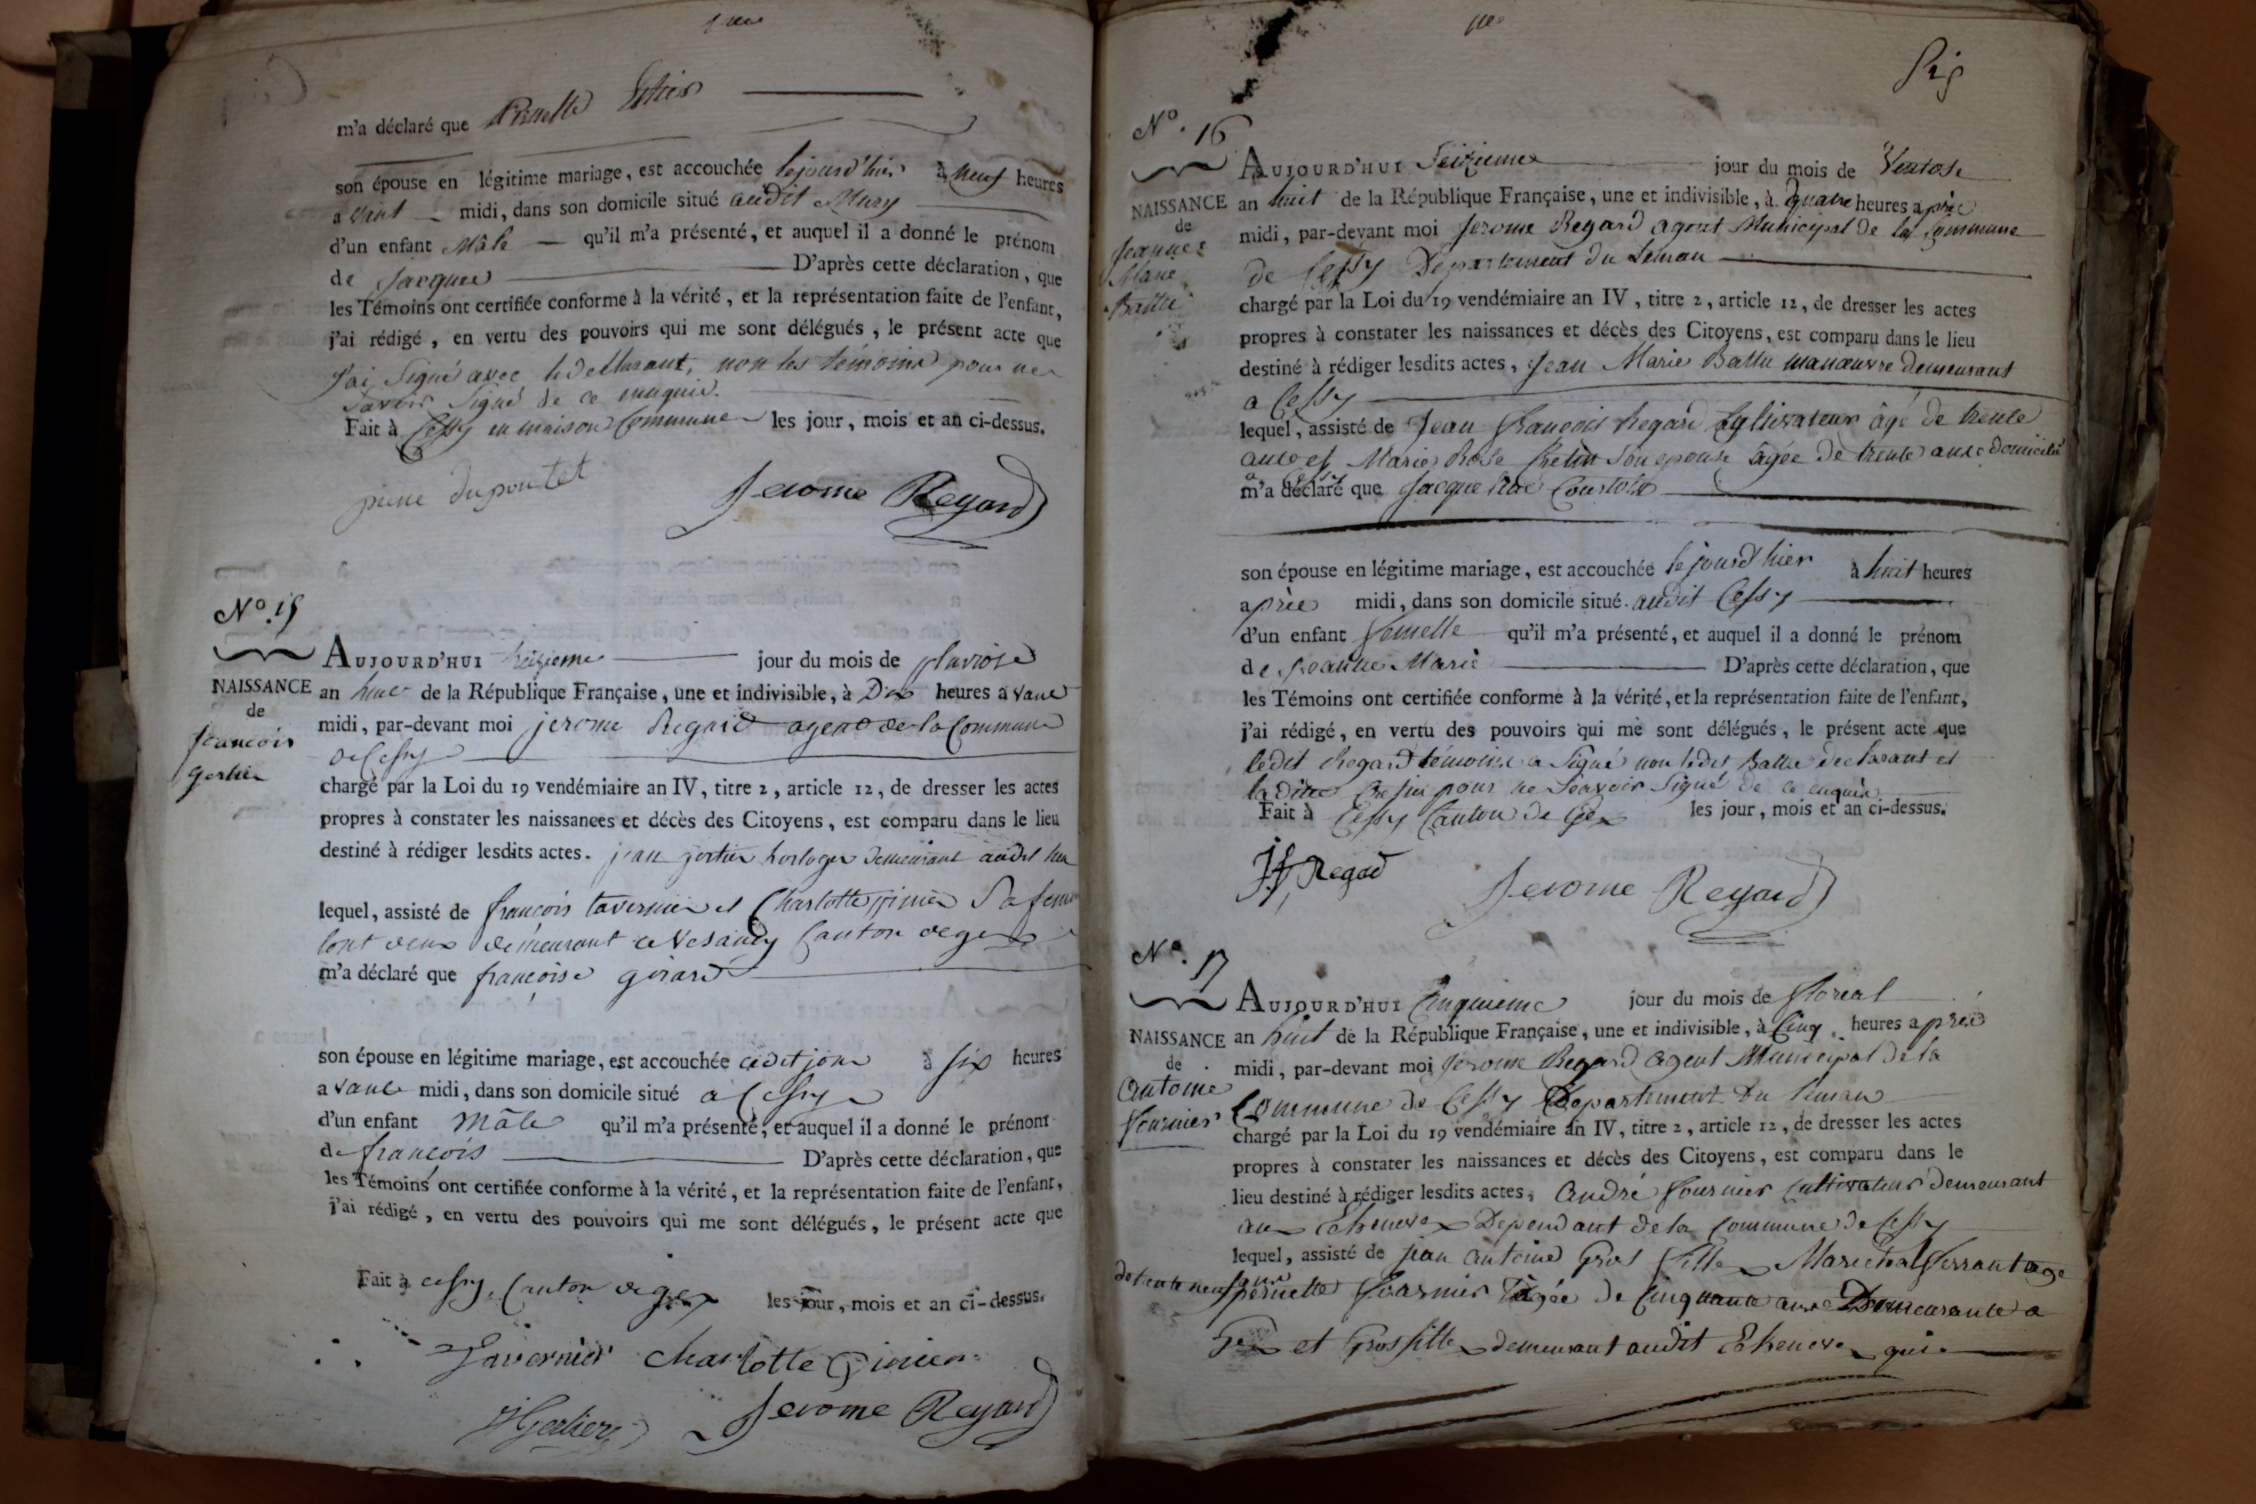 m'a déclaré que Pernette
son épouse en légitime mariage, est accouchée le jourd'hier à neuf heures
avant midi, dans son domicile situé audit Mury
d'un enfant Mâle qu'il m'a présenté, et auquel il a donné le prénom
de Jacques D'après cette déclaration, que
les Témoins ont certifiée conforme à la vérité, et la représentation faite de l'enfant,
j'ai rédigé, en vertu des pouvoirs qui me sont délégués, le présent acte que
j'ai Signé avec le declarant, non les témoins pour ne
Savoir Signé de ce enquis.
Fait à Cessy en maison Commune les jour, mois et an ci-dessus.
pierre duportet
Jerome Regard
N.º 15
AUJOURD'HUI treizieme jour du mois de pluviose
NAISSANCE
de
francois
gerlier
an huit de la République Française, une et indivisible, à Dix heures avant
midi, par-devant moi jerome Regard agent de la Commune
de Cessy
chargé par la Loi du 19 vendémiaire an IV, titre 2, article 12, de dresser les actes
propres à constater les naissances et décès des Citoyens, est comparu dans le lieu
destiné à rédiger lesdits actes. jean gerlier horloger demeurant audit lieu
lequel, assisté de françois tavernier et Charlotte Sa femme
tout deux demeurant a Vesancy Canton de gex
m'a déclaré que françoise girard
son épouse en légitime mariage, est accouchée cedit jour à six heures
avant midi, dans son domicile situé a Cessy
d'un enfant mâle qu'il m'a présenté, et auquel il a donné le prénom
de francois D'après cette déclaration, que
les Témoins ont certifiée conforme à la vérité, et la représentation faite de l'enfant,
j'ai rédigé, en vertu des pouvoirs qui me sont délégués, le présent acte que
Fait à cessy, Canton de gex les jour, mois et an ci-dessus.
Tavernier Charlotte
J Gerlier Jerome Regard
N.º 16
AUJOURD'HUI Seizieme jour du mois de Ventose
NAISSANCE
de
Jeanne
Marie
Ballu
an huit de la République Française, une et indivisible, à quatre heures après
midi, par-devant moi Jerome Regard agent Municipal de la Commune
de Cessy Departement du Leman
chargé par la Loi du 19 vendémiaire an IV, titre 2, article 12, de dresser les actes
propres à constater les naissances et décès des Citoyens, est comparu dans le lieu
destiné à rédiger lesdits actes, Jean Marie Ballu manœuvre demeurant
a Cessy
lequel, assisté de Jean François Regard Cultivateur âgé de trente
ans et Marie Rose Son epouse âgée de trente ans domicilié
a Cessy
m'a déclaré que Jacque Courtois
son épouse en légitime mariage, est accouchée le jourd'hier à huit heures
après midi, dans son domicile situé audit Cessy
d'un enfant femelle qu'il m'a présenté, et auquel il a donné le prénom
de Jeanne Marie D'après cette déclaration, que
les Témoins ont certifiée conforme à la vérité, et la représentation faite de l'enfant,
j'ai rédigé, en vertu des pouvoirs qui me sont délégués, le présent acte que
ledit Regard témoins a Signé non ledit Ballu declarant et
la dite pour ne Scavoir Signé de ce enquis
Fait à Cessy Canton de Gex les jour, mois et an ci-dessus.
Jf Regard
Jerome Regard
N.º 17
AUJOURD'HUI Cinquieme jour du mois de floreal
NAISSANCE
de
Antoine
Fournier
an huit de la République Française, une et indivisible, à Cinq heures après
midi, par-devant moi Jerome Regard agent Municipal de la
Commune de Cessy Departement du Leman
chargé par la Loi du 19 vendémiaire an IV, titre 2, article 12, de dresser les actes
propres à constater les naissances et décès des Citoyens, est comparu dans le
lieu destiné à rédiger lesdits actes, André Fournier Cultivateur demeurant
aux Chenevex Dependant de la Commune de Cessy
lequel, assisté de jean antoine Gros fille Marechal ferrant age
de trente neuf ans pernette Fournier âgée de Cinquante ans Demeurante a
Gex et Grosfille demeurant audit Chenevex qui